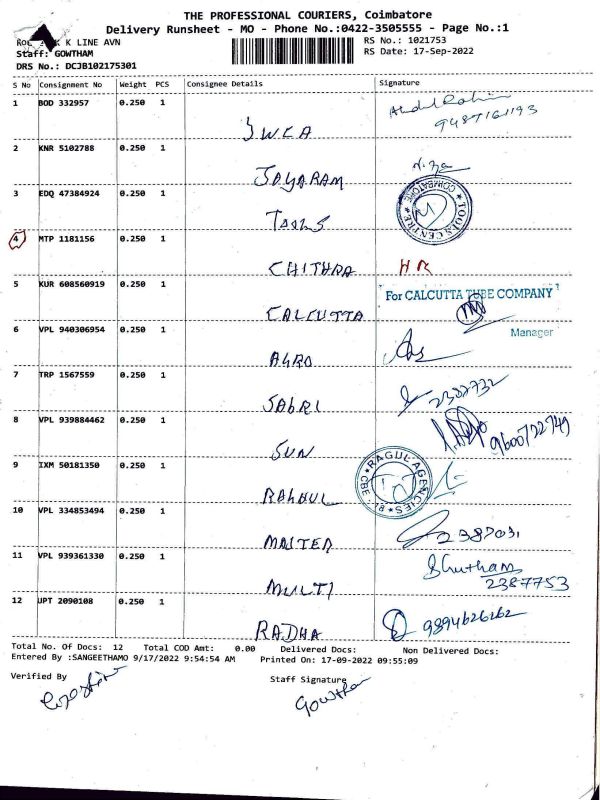 THE PROFESSIONAL COURIERS, Coimbatore
Delivery Runsheet - MO - Phone No.:0422-3505555 - Page No.:1
K LINE AVN
RS No.: 1021753
Staff: GOWTHAM
RS Date: 17-Sep-2022
DRS No.: DCJB102175301
S No Consignment No Weight PCS Consignee Details Signature
1 BOD 332957 0.250 1 YWCA Abdul Rahim
9487161193
2 KNR 5102788 0.250 1 JAYARAM
3 EDQ 47384924 0.250 1 TOOLS TOOLS CENTRE COIMBATORE
4 MTP 1181156 0.250 1 CHITHRA HR
5 KUR 608560919 0.250 1 CALCUTTA For CALCUTTA TUBE COMPANY
Manager
6 VPL 940306954 0.250 1 AGRO
7 TRP 1567559 0.250 1 SABRI 2382732
8 VPL 939884462 0.250 1 SUN 9600722749
9 IXM 50181350 0.250 1 RAHUL RAGUL AGENCIES CBE
10 VPL 334853494 0.250 1 MASTER 2387031
11 VPL 939361330 0.250 1 MULTI Bhutham
2387753
12 UPT 2090108 0.250 1 RADHA 9894626262
Total No. Of Docs: 12 Total COD Amt: 0.00 Delivered Docs: Non Delivered Docs:
Entered By :SANGEETHAMO 9/17/2022 9:54:54 AM Printed On: 17-09-2022 09:55:09
Verified By Staff Signature
Gowtham